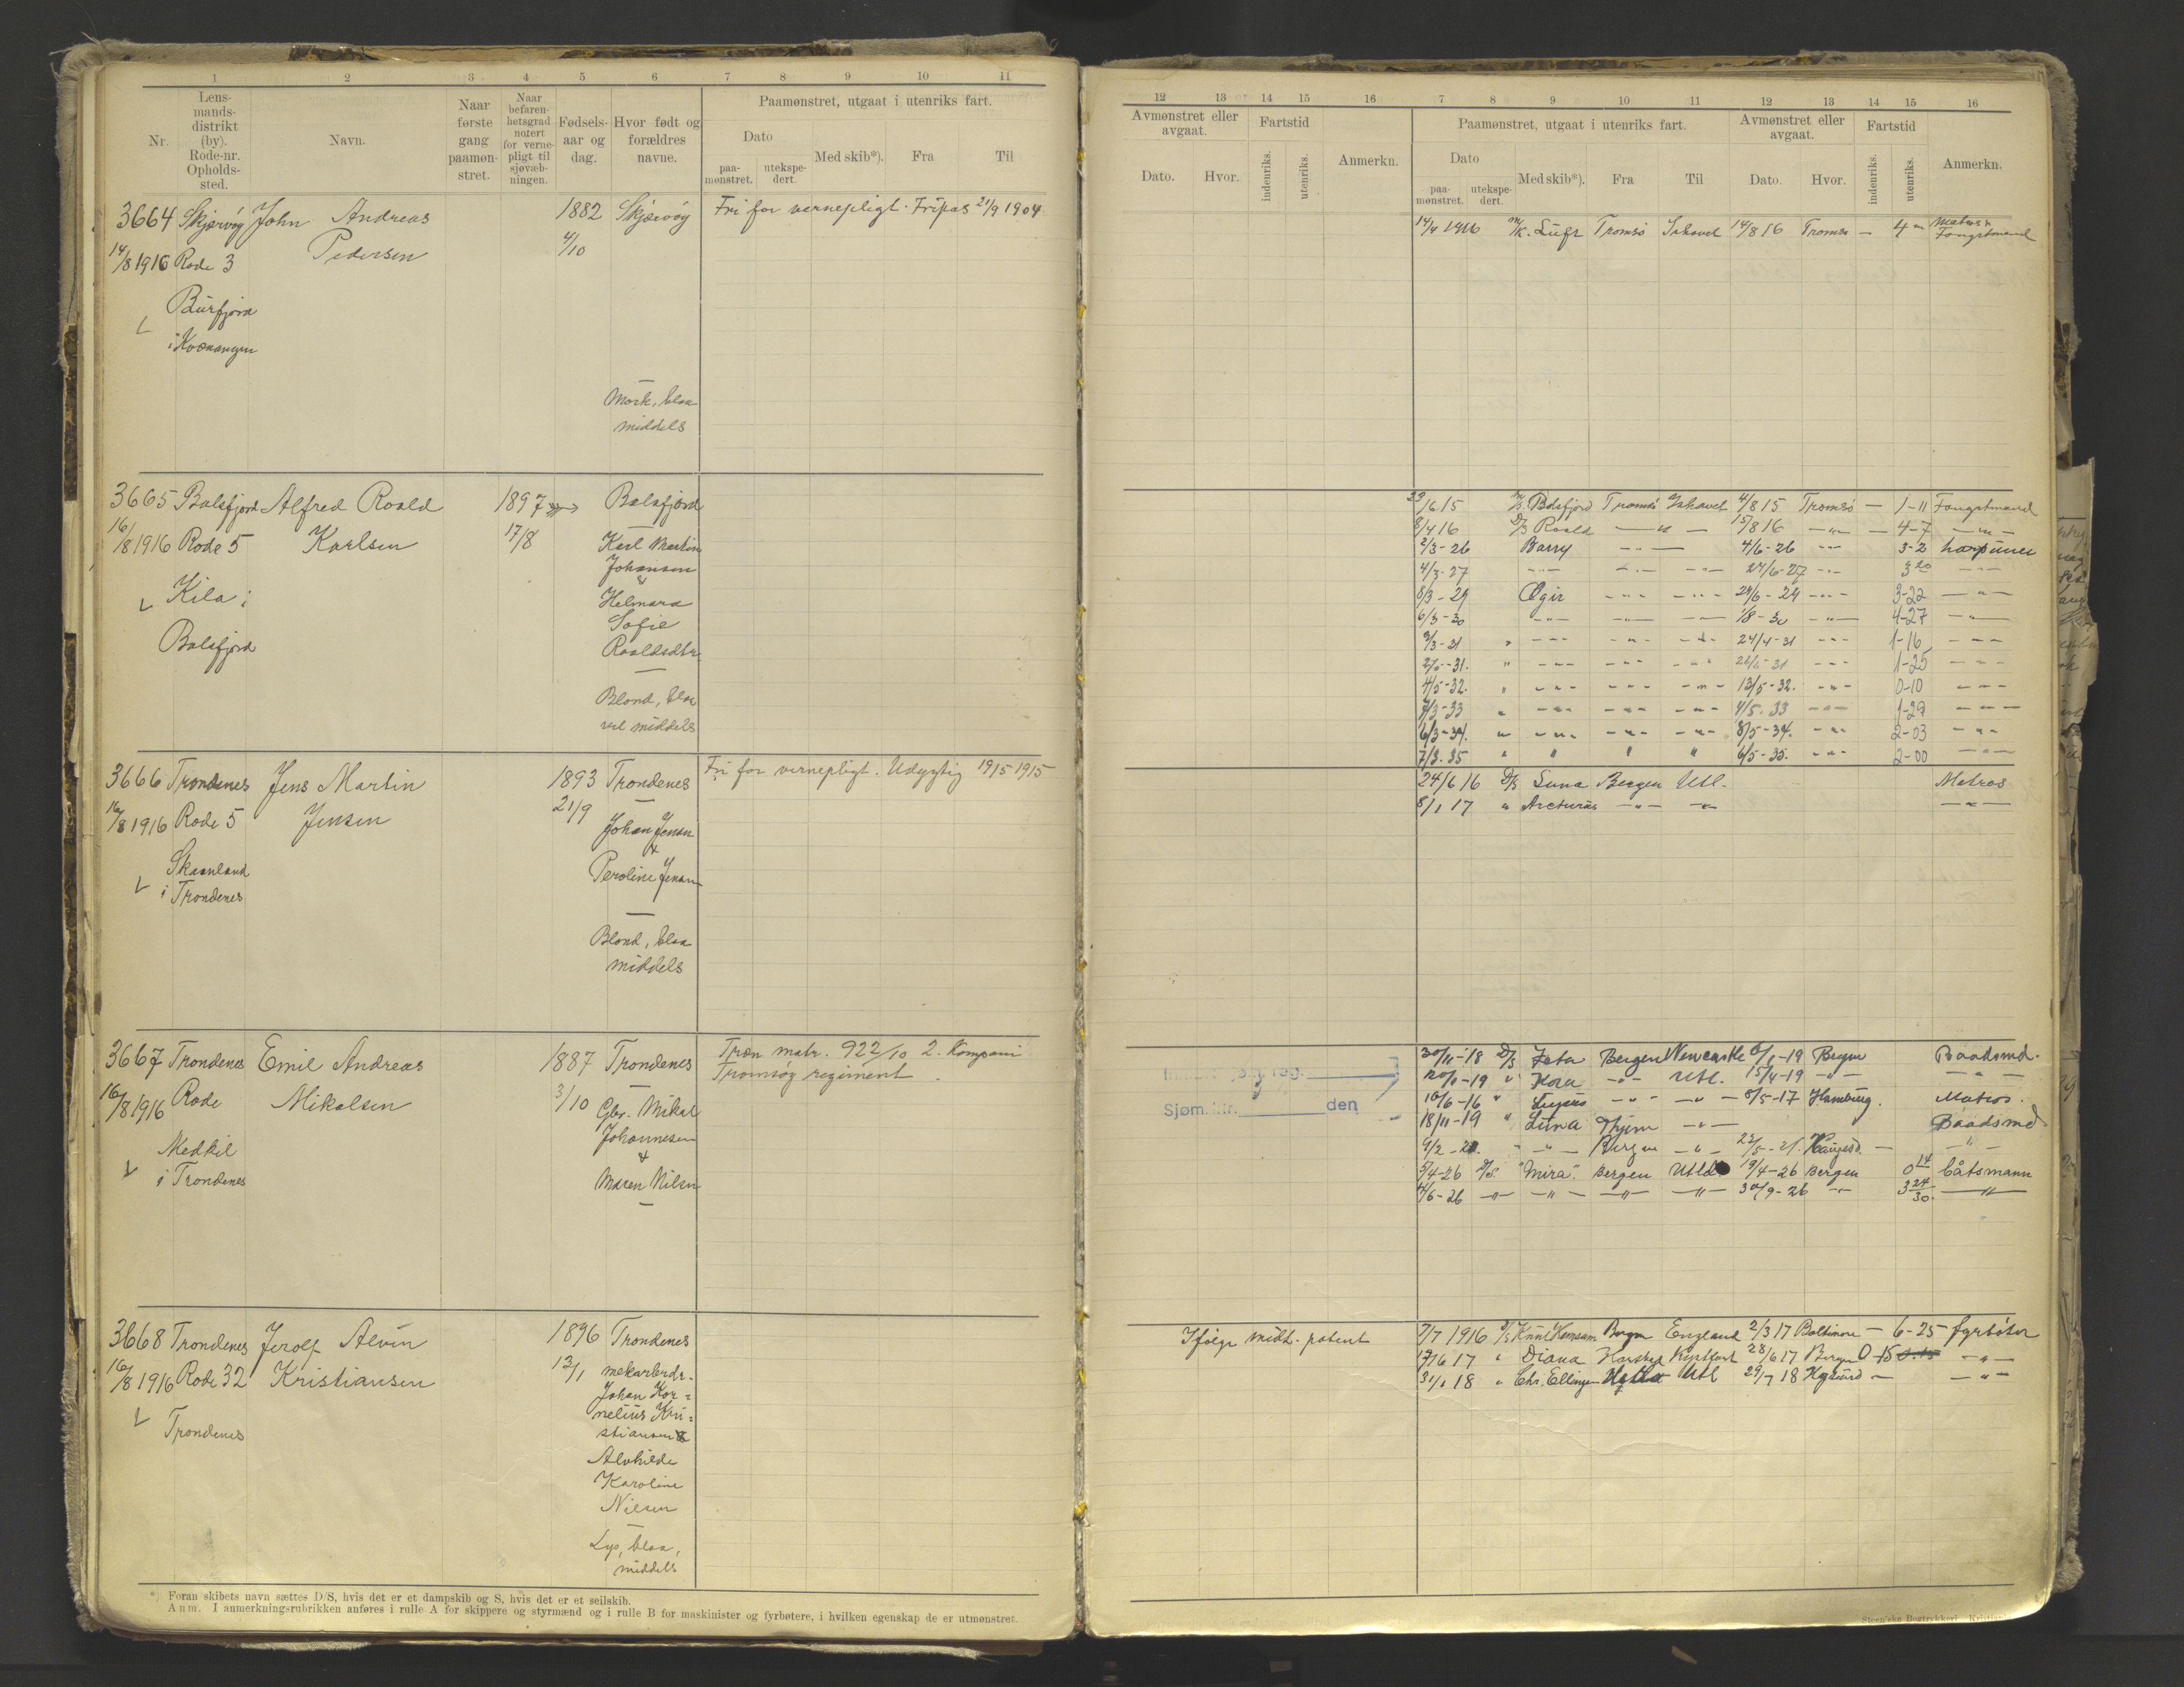 1 2 3 4 5 6 7 8 9 10 11
Nr. Lensmandsdistrikt (by). Rode-nr. Opholdssted. Navn. Naar første gang paamønstret. Naar befarenhetsgrad notert for vernepligt til sjøvæbningen. Fødselsaar og dag. Hvor født og forældres navne.
Paamønstret, utgaat i utenriks fart.
Dato paamønstret. utekspedert. Med skib*). Fra Til
3664 Skjervøy John Andreas 1882 Skjærvøy Fri for vernepligt. Fripas 21/9 1904
14/8 1916 Rode 3 Pedersen 4/10
Burfjord
i Kvænangen
Mørk, blaa
middels
3665 Balsfjord Alfred Roald 1897 Balsfjord
16/8 1916 Rode 5 Karlsen 17/8 Karl Martin
Johansen
&
Kila i Helmara
Sofie
Balsfjord Roaldsdtr.
Blond, blaa
vel middels
3666 Trondenes Jens Martin 1893 Trondenes Fri for vernepligt. Udygtig 19/5 1915
16/8 1916 Rode 5 Jensen 21/9 Johan Jensen
&
Skaanland Peroline Jensen
i Trondenes
Blond, blaa
middels
3667 Trondenes Emil Andreas 1887 Trondenes Træn matr. 922/10 2. Kompani
16/8 1916 Rode Mikalsen 3/10 Gbr. Mikal Tromsøy regiment.
Johannesen
Medkil &
i Trondenes Maren Nilsen
3668 Trondenes Jerolf Alvin 1896 Trondenes
16/8 1916 Rode 32 Kristiansen 13/1
Johan Kor=
nelius Kri=
Trondenes stiansen &
Alvhilde
Karoline
Nilsen
Lys, blaa,
middels
*) Foran skibets navn sættes D/S, hvis det er et dampskib og S, hvis det er et seilskib.
Anm. I anmerkningsrubrikken anføres i rulle A for skippere og styrmænd og i rulle B for maskinister og fyrbøtere, i hvilken egenskap de er utmønstret.
12 13 14 15 16 7 8 9 10 11 12 13 14 15 16
Avmønstret eller avgaat. Fartstid Paamønstret, utgaat i utenriks fart. Avmønstret eller avgaat. Fartstid
Dato. Hvor. indenriks. utenriks. Anmerkn. Dato paamønstret. utekspedert. Med skib*). Fra Til Dato. Hvor. indenriks. utenriks. Anmerkn.
14/4 1916 M/K. Tromsø Ishavet 14/8 16 Tromsø — 4 Matros &
Fangstmand
23/6 15 Balsfjord Tromsø Ishavet 4/8 15 Tromsø — 1-11 Fangstmand
8/4 16 D/S Roald — " — 15/8 16 — " — 4-7 — " —
2/3-26 Barry — " — 4/6-26 — " — 3-2 harpuner
4/3-27 — " — — " — — " — 24/6-27 — " — 3 20 — " —
8/3-29 Ægir — " — — " — 29/6-29 — " — 3-22 — " —
6/3-30 — " — — " — — " — 1/8-30 — " — 4-27 — " —
9/3-31 " — " — — " — — " — 24/4-31 — " — 1-16 — " —
" — " — — " — — " — — " — 1-25 — " —
4/5-32. " — " — — " — — " — 13/5-32. — " — 0-10 — " —
7/3-33 " — " — — " — — " — 4/5-33 — " — 1-29 — " —
6/3-34. " — " — — " — — " — 8/5-34. — " — 2-03 — " —
7/3.35 " " " " 6/5-35. — " — 2-00 — " —
24/6 16 D/S Luna Bergen Utl. Matros
8/1 17 " Arcturus — " — — " — — " —
30/11-18 D/S Zeta Bergen Newcastle 6/1-19 Bergen Baadsmd.
20/1-19 " Kora — " — Utl. 15/4-19 — " — — " —
16/6-16 " — " — — " — 8/5-17 Hamburg. Matros.
18/11-19 " Luna Thjem — " — Baadsmd
Sjøm. den
9/2-21. " — " — Bergen — " — 23/5-21. Haugesd. — — " —
5/4-26 D/S. "Mira". Bergen Utld 19/4-26 Bergen 0 14 båtsmann
4/6-26 — " — — " — — " — — " — 30/9-26 — " — 3 24/30. — " —
Ifølge midt. patent 7/7 1916 D/S Knut Hamsun Bergen England 2/3 17 Baltimore — 6-25 fyrbøter
17/6 17 " Diana Harstad Kystfart 28/6 17 Bergen 0-15 — " —
31/1 18 " Chr. Ellingsen Utl 29/7 18 — — " —
Steen'ske Bogtrykkeri